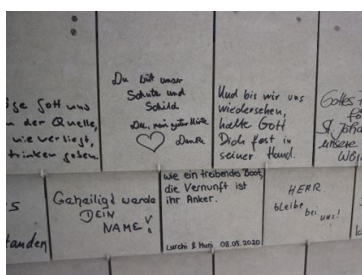 Gott uns
der Quelle,
nie versiegt,
trinken geben.
Du bist unser
Schutz und
Schild
Du, mein guter Hirte
Danke
Und bis wir uns
wiedersehen,
halte Gott
Dich fest in
seiner Hand.
Gottes
St. Joha
unsere
Geheiligt werde
DEIN
NAME!
wie ein treibendes Boot,
die Vernunft ist
ihr Anker.
Lurchi & Hurj 08.05.2020
HERR.
bleibe bei
uns!
standen